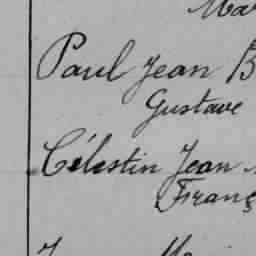 Paul Jean
Gustave
Célestin Jean
Franç